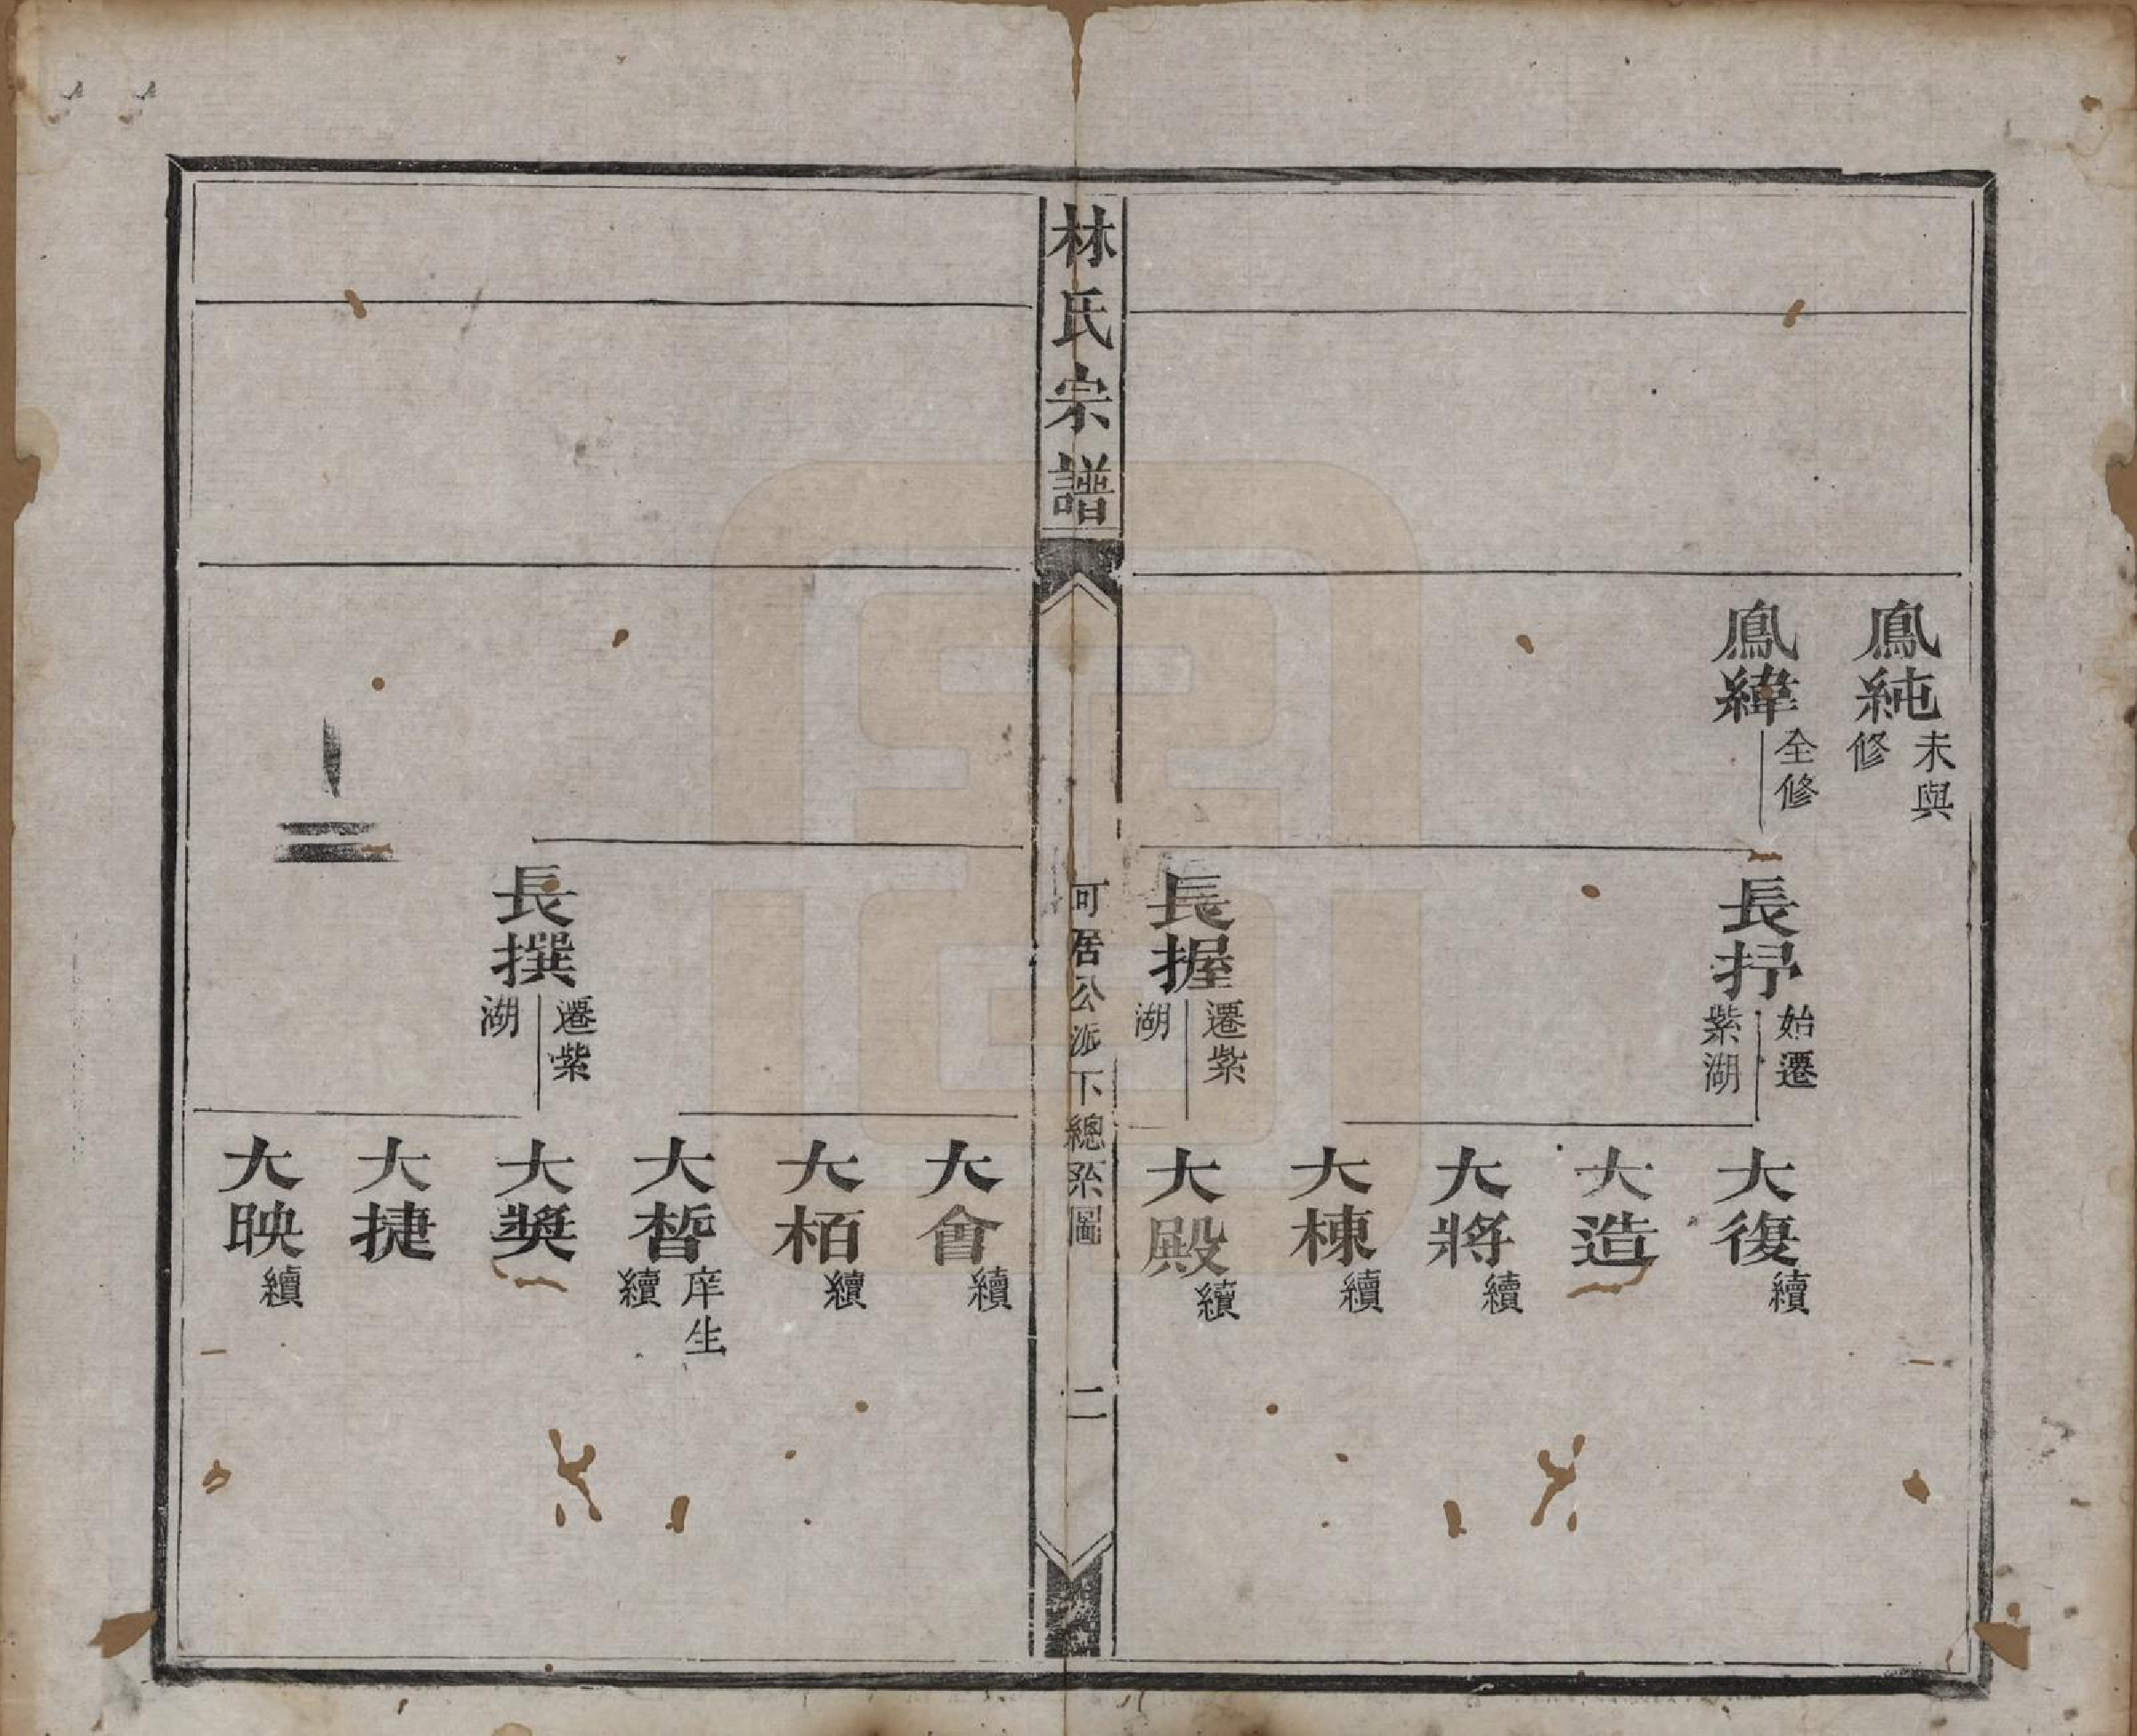 鳳純 未與修
鳳緯 仝修
長抒 始遷紫湖
大復 續
大造
大將 續
大棟 續
長握 遷紫湖
大殿 續
林氏宗譜
可居公派下總系圖
二
大會 續
大栢 續
大晳 庠生續
長撰 遷紫湖
大奬
大捷
大映 續